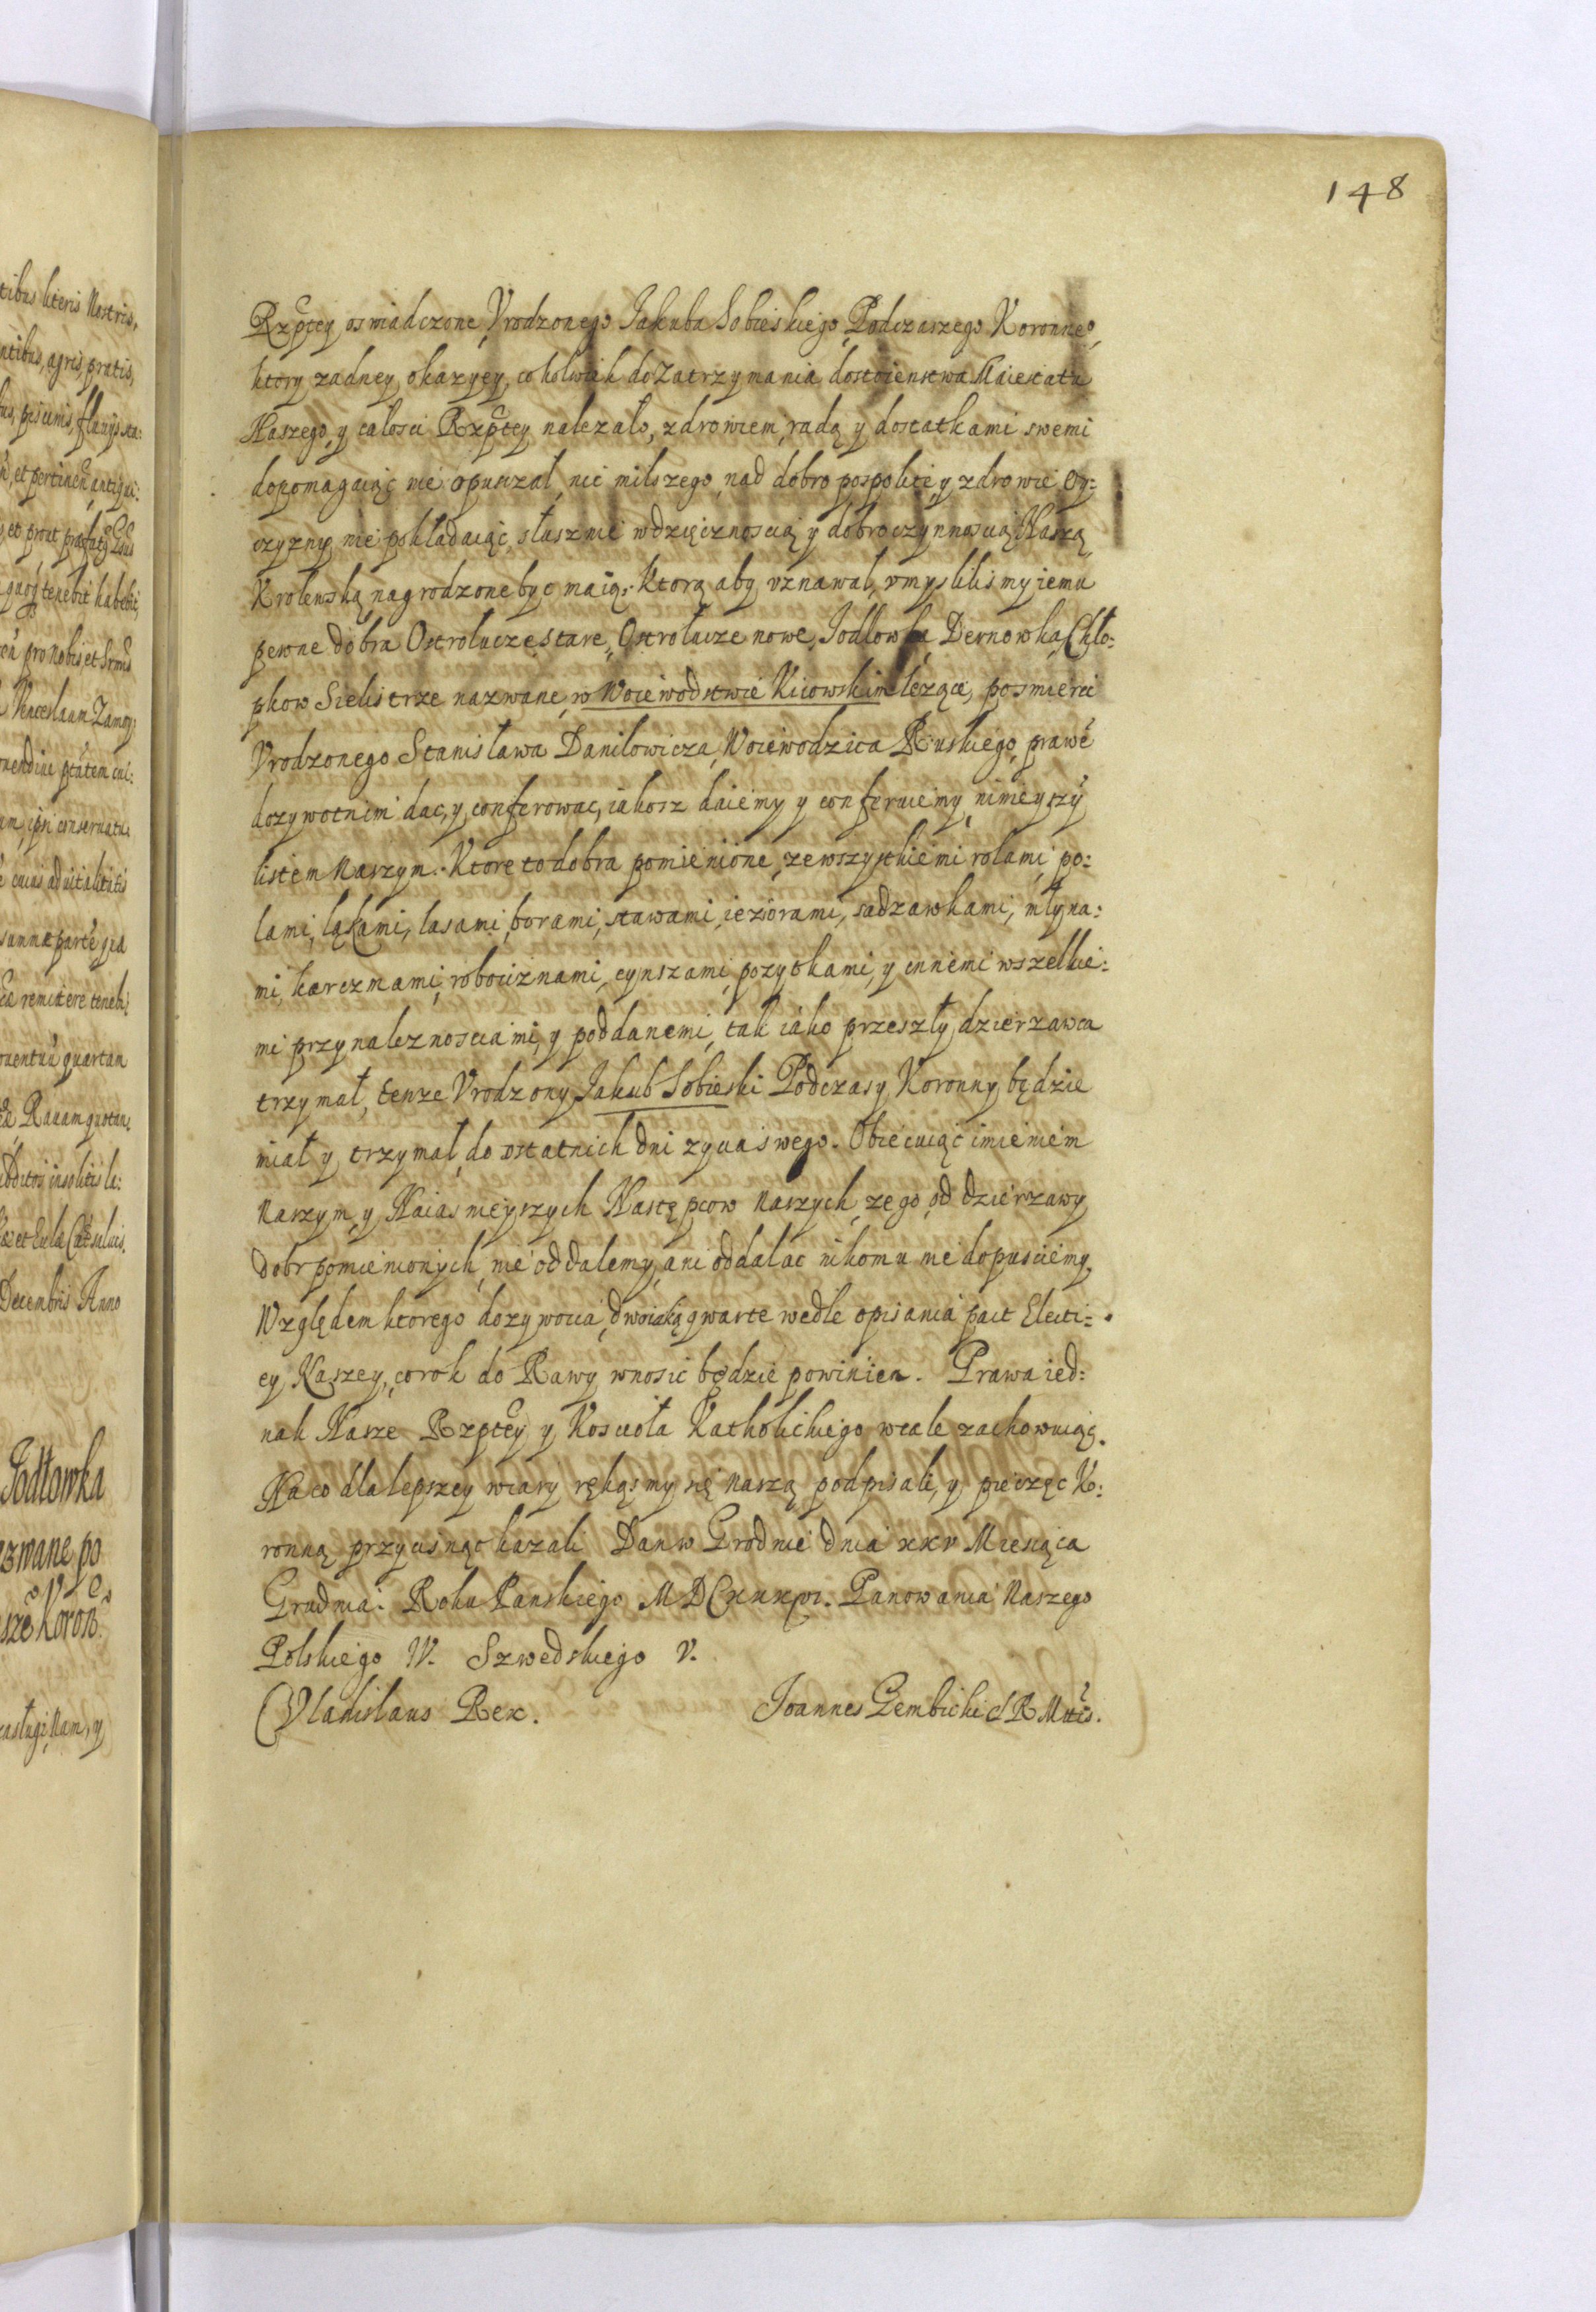 148
Rzptey osmiadczone, Vrodzonego Jakuba Sobieskiego, Podczaszego Koronneo,
ktory zadney okazyey, cokolwiek do Zatrzymania dostoienstwa Maiestatu
Naszego, y całosci Rzptey nalezało, zdrowiem, radą y dostatkami swemi
dopomagaiąc nie opuszał, nic milszego, nad dobro pospolite, y zdrowie Oy:
czyzny nie pokładaiąc, słusznie wdzięcznoscią y dobroczynnoscią Naszą
Krolewską nagrodzone byc maią. Ktorą aby vznawał, vmyslilismy iemu
pewne dobra Ostrołucze stare, Ostrołucze nowe, Jodłowka, Dernowka, Chło:
pkow Sielistrze nazwane, w Woiewodstwie Kiiowskim lezące, posmierci
Vrodzonego Stanisława Daniłowicza, Woiewodzica Ruskiego, prawe
dozywotnim dac, y conferowac, iakosz daiemy y conferuiemy, nimieyszy
listem Naszym. Ktore to dobra pomienione, zewszystkiemi rolami, po:
lami, łąkami, lasami, borami, stawami, ieziorami, sadzawkami, młyna:
mi, karczmami, robociznami, cynszami, pozytkami, y innemi wszelkie:
mi przynaleznosciami, y poddanemi, tak iako przeszły dzierzawca
trzymał, tenze Vrodzony Jakub Sobieski Podczasy Koronny będzie
miał y trzymał, do ostatnich dni zycia swego. Obiecuiąc imieniem
Naszym, y Naiasnieyszych Następcow Naszych, ze go, od dzierzawy
dobr pomienionych, nie oddalemy, ani oddalac nikomu nie dopusciemy.
Względem ktorego dozywocia, dwoiaką qwarte wedle opisania pact Electi:
ey Naszey, corok do Rawy wnosic będzie powinien. Prawa ied:
nak Nasze Rzptey y Koscioła Katholickiego wcale zachowuiąc.
Na co dla lepszey wiary rękąsmy się Naszą podpisali, y pieczęc Ko:
ronną przycisnąc kazali Dan w Grodnie dnia xxv Miesiąca
Grudnia. Roku Panskiego MDCxxxvi. Panowania Naszego
Polskiego IV. Szwedskiego V.
Vladislaus Rex. Joannes Gembicki S R Mttis.